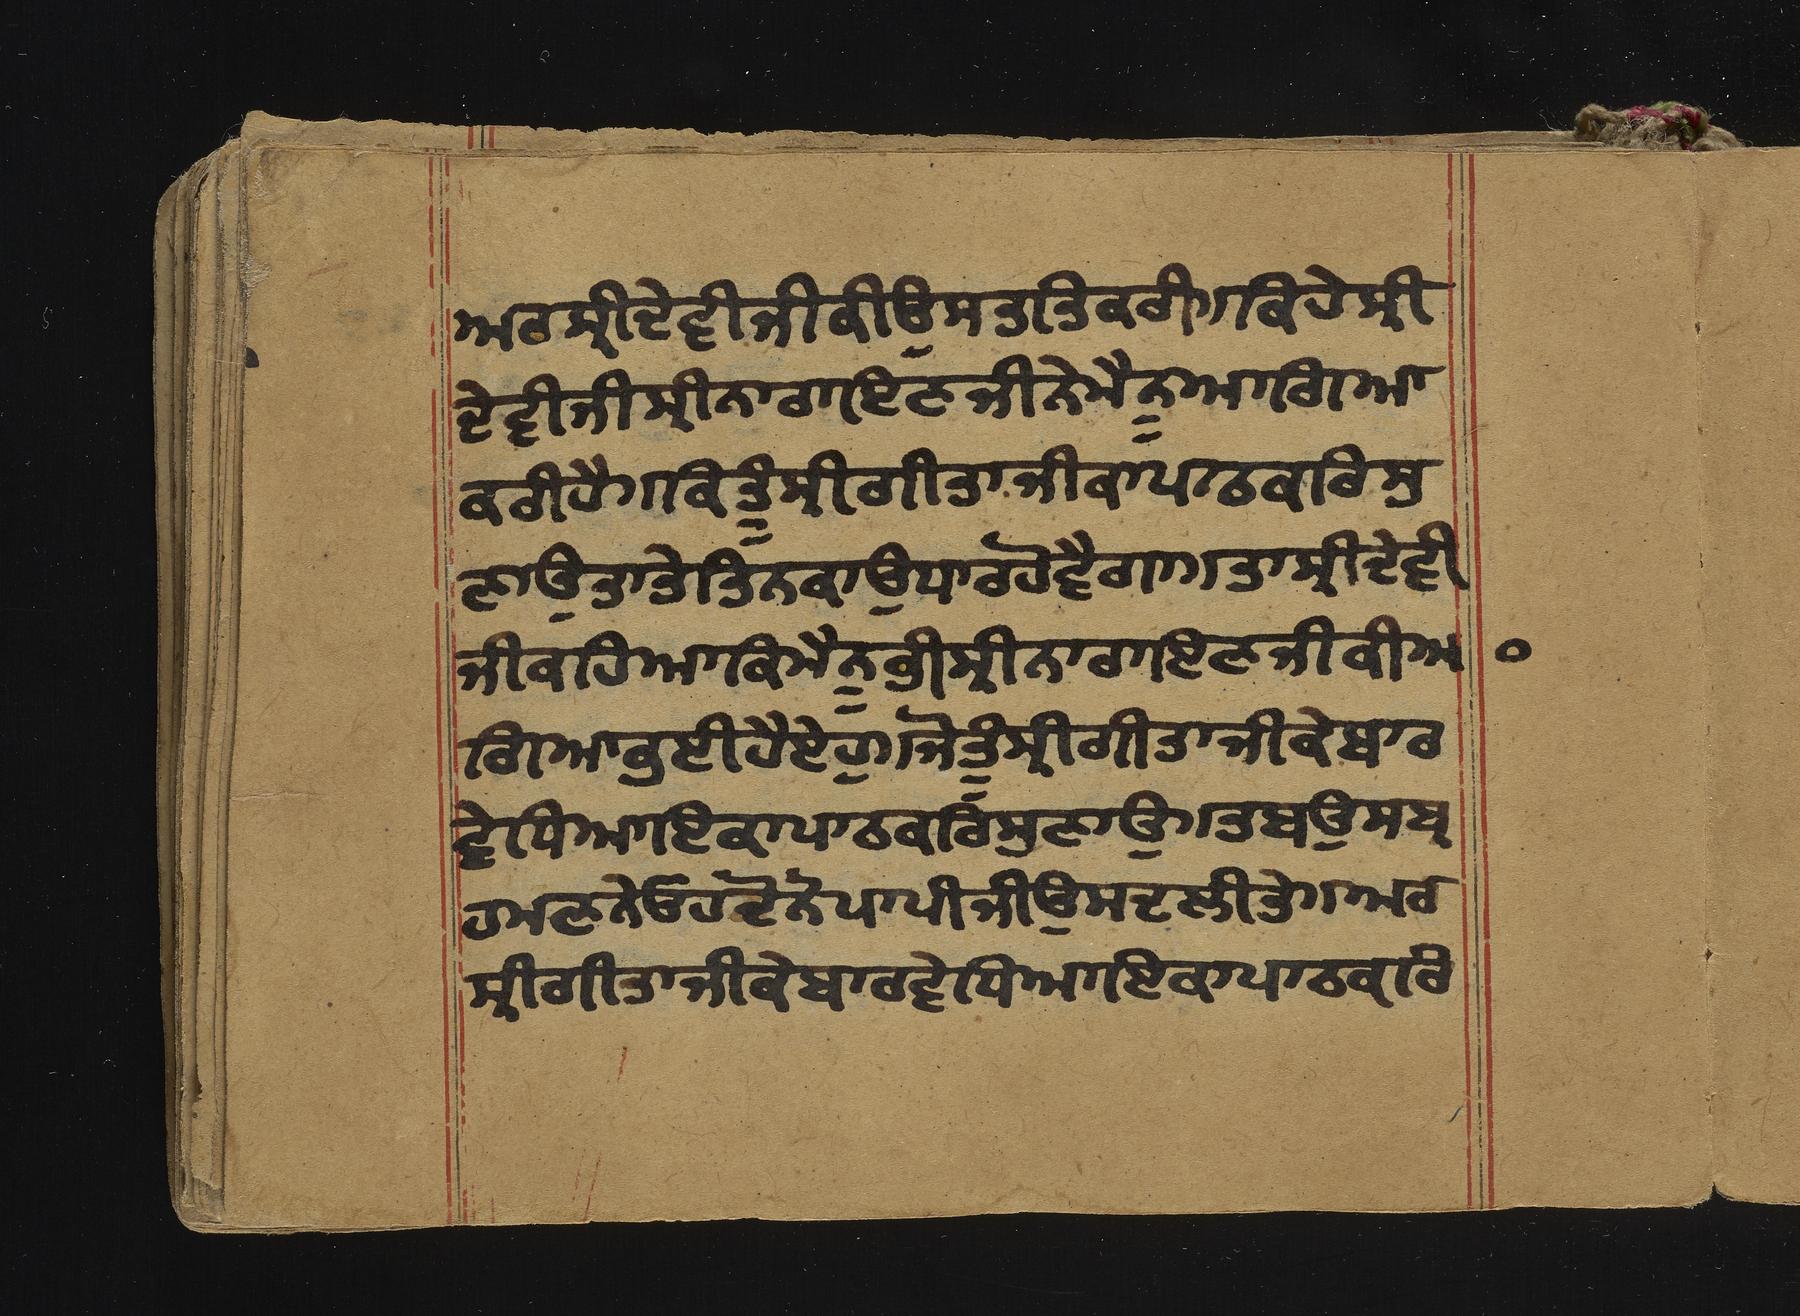 ਅਰਸ੍ਰੀਦੇਵੀਜੀਕੀਉਸਤਤਿਕਰੀ।ਕਿਹੇਸ੍ਰੀ
ਦੇਵੀਜੀਸ੍ਰੀਨਾਰਾਇਣਜੀਨੇਮੈਨੂਆਗਿਆ
ਕਰੀਹੈ।ਕਿਤੂੰਸ੍ਰੀਗੀਤਾਜੀਕਾਪਾਠਕਰਿਸੁ
ਣਾਉਤਾਤੇਤਿਨਕਾਉਧਾਰਹੋਵੈਗਾ।ਤਾਸ੍ਰੀਦੇਵੀ
ਜੀਕਹਿਆਕਿਮੈਨੂਭੀਸ੍ਰੀਨਾਰਾਇਣਜੀਕੀਅ
ਗਿਆਹੁਈਹੈਏਹੁ।ਜੋਤੂੰਸ੍ਰੀਗੀਤਾਜੀਕੇਬਾਰ
ਵੇਧਿਆਇਕਾਪਾਠਕਰਿਸੁਣਾਉ।ਤਬਉਸਬ੍
ਹਮਣਨੇਓਹਦੋਨੋਪਾਪੀਜੀਉਸਦਲੀਤੇ।ਅਰ
ਸ੍ਰੀਗੀਤਾਜੀਕੇਬਾਰਵੇਧਿਆਇਕਾਪਾਠਕਰਿ